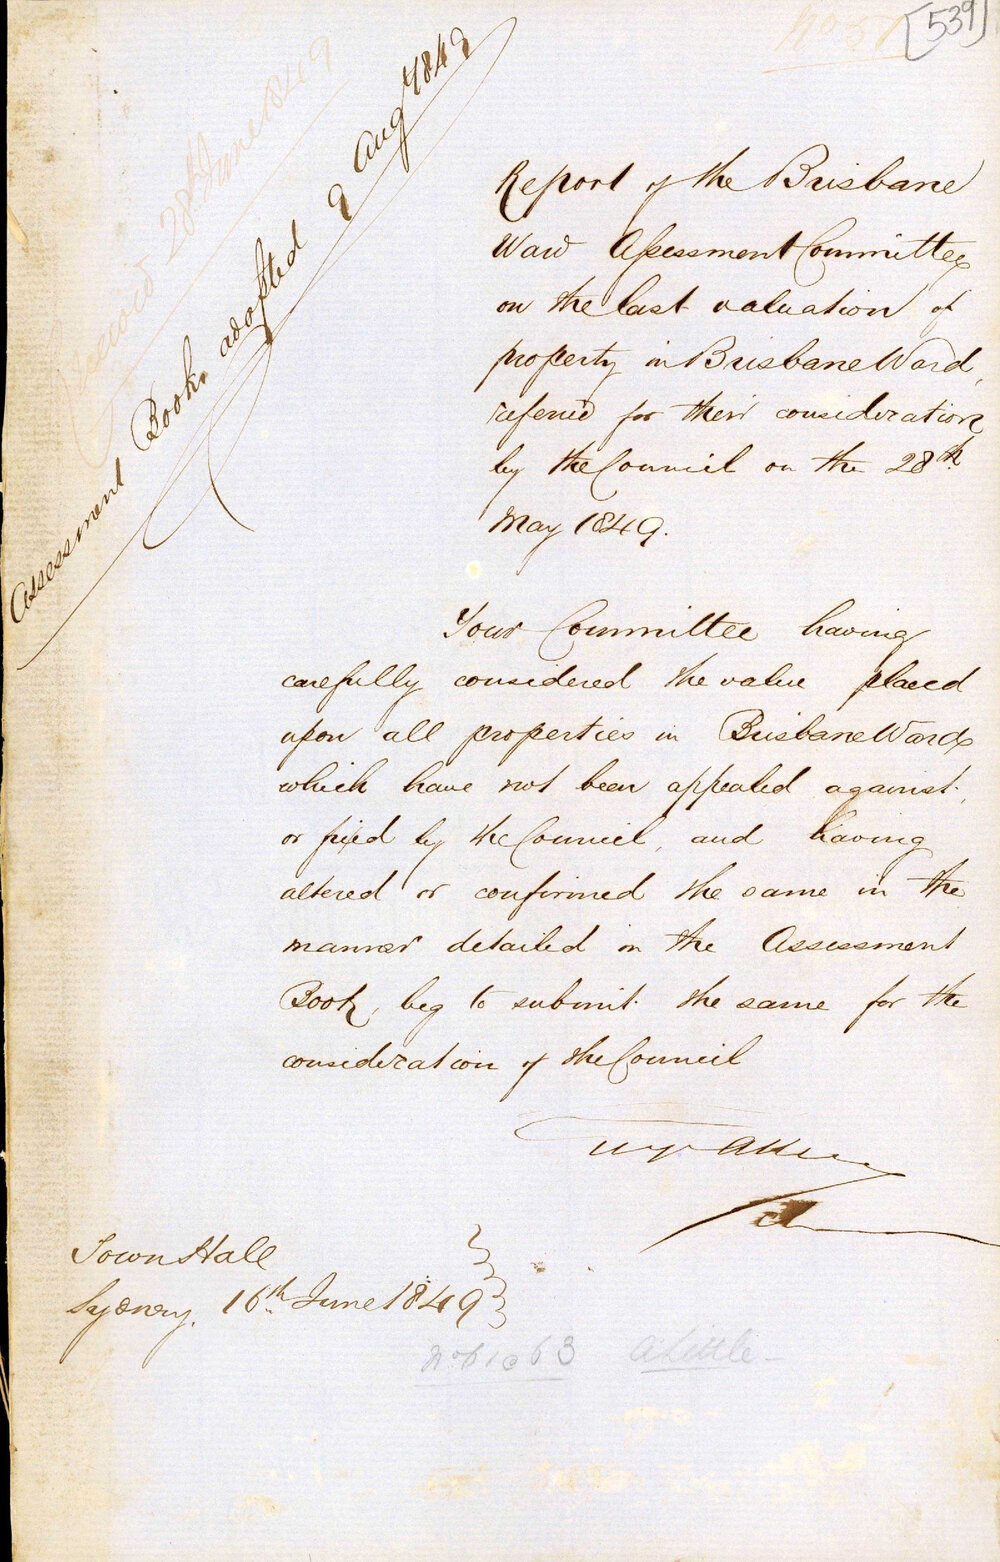 [539]
No 57
Received 28th June 1849
Assessment Book adopted 9 Aug 1849
Report of the Brisbane
Ward Assessment Committee
on the last valuation of
property in Brisbane Ward,
referred for their consideration
by the Council on the 28th
May 1849.
Your Committee having
carefully considered the value placed
upon all properties in Brisbane Ward
which have not been appealed against,
or fixed by the Council, and having
altered or confirmed the same in the
manner detailed in the Assessment
Book, beg to submit the same for the
consideration of the Council
Town Hall
Sydney, 16th June 1849
A Little